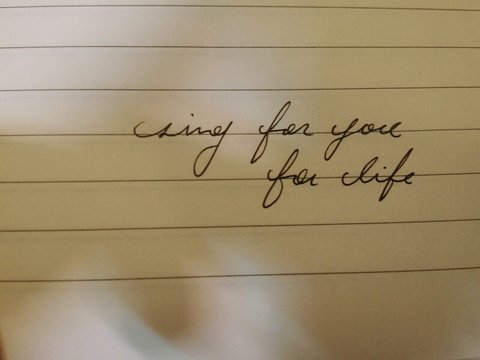 sing for you
for life